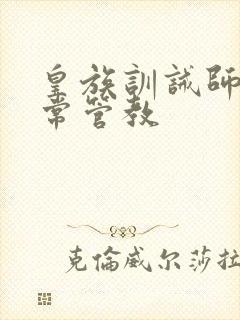 皇族訓誡師
常管教
克倫威尔莎拉